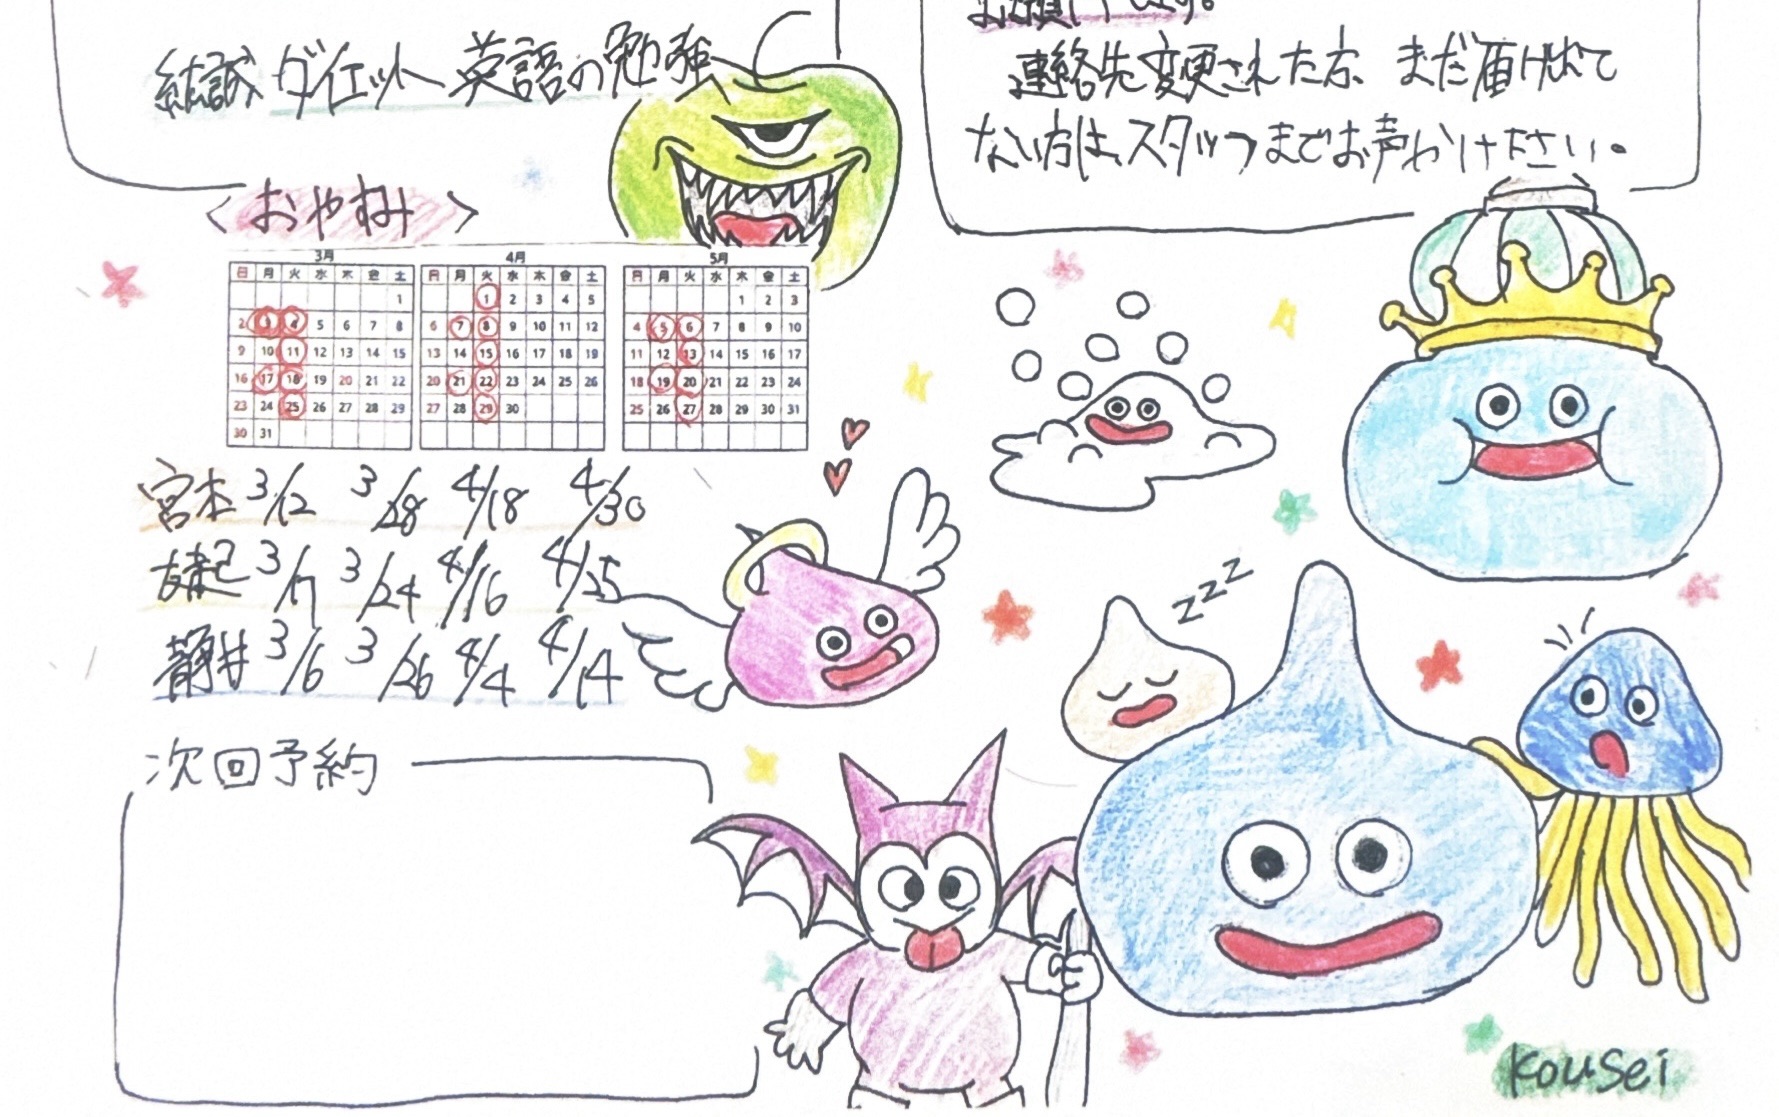 結誠 ダイエット 英語の勉強
お願いします。
連絡先変更された方、まだ届けれて
ない方は、スタッフまでお声かけ下さい。
<おやすみ>
3月 4月 5月
日 月 火 水 木 金 土 日 月 火 水 木 金 土 日 月 火 水 木 金 土
1 1 2 3 4 5 1 2 3
2 3 4 5 6 7 8 6 7 8 9 10 11 12 4 5 6 7 8 9 10
9 10 11 12 13 14 15 13 14 15 16 17 18 19 11 12 13 14 15 16 17
16 17 18 19 20 21 22 20 21 22 23 24 25 26 18 19 20 21 22 23 24
23 24 25 26 27 28 29 27 28 29 30 25 26 27 28 29 30 31
30 31
宮本 3/12 3/28 4/18 4/30
友起 3/17 3/24 4/16 4/25
静井 3/6 3/26 4/4 4/14
zzz
次回予約
Kousei